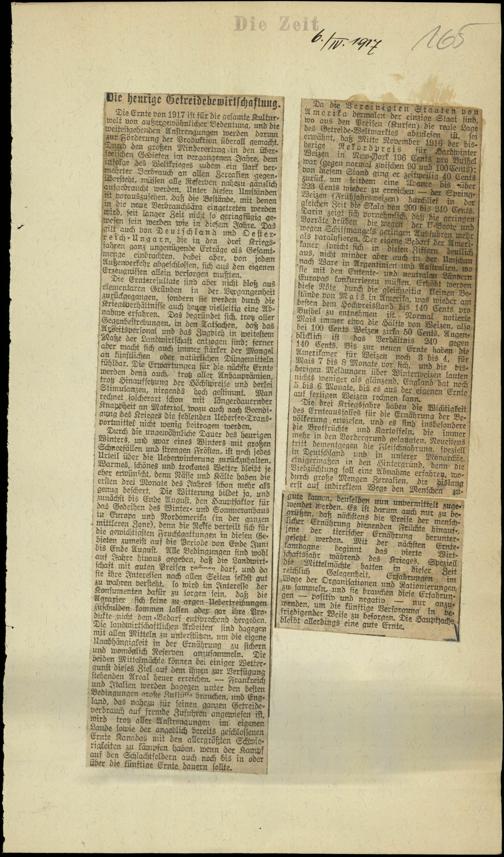 Die Zeit
6./IV. 1917
165
Die heurige Getreidebewirtschaftung.
Die Ernte von 1917 ist für die gesamte Kultur-
welt von außergewöhnlicher Bedeutung, und die
weitestgehenden Anstrengungen werden darum
zur Förderung der Produktion überall gemacht.
Durch den großen Minderertrag in den über-
seeischen Gebieten im vergangenen Jahre, dem
zufolge des Weltkrieges zudem ein stark ver-
mehrter Verbrauch an allen Zerealien gegen-
übersteht, müssen alle Reserven nahezu gänzlich
aufgebraucht werden. Unter diesen Umständen
ist vorauszusehen, daß die Bestände, mit denen
in die neue Verbrauchsära eingetreten werden
wird, seit langer Zeit nicht so geringfügig ge-
wesen sein werden wie in diesem Jahre. Das
gilt auch von Deutschland und Oester-
reich-Ungarn, die in den drei Kriegs-
jahren ganz ungenügende Erträge als Gesamt-
menge einbrachten, dabei aber, von jedem
Außenverkehr abgeschlossen, sich aus den eigenen
Erzeugnissen allein versorgen mußten.
Die Ernteresultate sind aber nicht bloß aus
elementaren Gründen in der Vergangenheit
zurückgegangen, sondern sie werden durch die
Kriegsverhältnisse auch heuer vielseitig eine Ab-
nahme erfahren. Das begründet sich, trotz aller
Gegenbestrebungen, in den Tatsachen, daß das
Arbeitspersonal und das Zugvieh in weitestem
Maße der Landwirtschaft entzogen sind; ferner
aber macht sich auch immer stärker der Mangel
an künstlichen oder natürlichen Düngemitteln
fühlbar. Die Erwartungen für die nächste Ernte
werden denn auch, trotz aller Anbauprämien,
trotz Hinaufsetzung der Höchstpreise und derlei
Stimulanzien, nirgends hoch gestimmt. Man
rechnet solcherart schon mit längerdauernder
Knappheit an Material, wozu auch nach Beendi-
gung des Krieges die fehlenden Uebersee-Trans-
portmittel nicht wenig beitragen werden.
Durch die ungewöhnliche Dauer des heurigen
Winters, und zwar eines Winters mit großen
Schneefällen und strengen Frösten, ist noch jedes
Urteil über die Ueberwinterung zurückzuhalten.
Warmes, schönes und trockenes Wetter bleibt je
eher erwünscht, denn Nässe und Kälte haben die
ersten drei Monate des Jahres schon mehr als
genug beschert. Die Witterung bildet ja, und
zunächst bis Ende August, den Hauptfaktor für
das Gedeihen des Winter- und Sommeranbaus
in Europa und Nordamerika (in der ganzen
mittleren Zone), denn die Reste verteilt sich für
die gewichtigsten Fruchtgattungen in diesen Ge-
bieten zumeist auf die Periode von Ende Juni
bis Ende August. Alle Bedingungen sind wohl
auf Jahre hinaus gegeben, daß die Landwirt-
schaft mit guten Preisen rechnen darf, und da
sie ihre Interessen nach allen Seiten selbst gut
zu wahren versteht, so wird im Interesse der
Konsumenten dafür zu sorgen sein, daß die
Agrarier sich keine zu argen Uebertreibungen
zuschulden kommen lassen oder gar ihre Pro-
dukte nicht dem Bedarf entsprechend hergeben.
Die landwirtschaftlichen Arbeiten sind dagegen
mit allen Mitteln zu unterstützen, um die eigene
Unabhängigkeit in der Ernährung zu sichern
und womöglich Reserven anzusammeln. Die
beiden Mittelmächte können bei einiger Wetter-
gunst dieses Ziel auf dem ihnen zur Verfügung
stehenden Areal heuer erreichen. — Frankreich
und Italien werden dagegen unter den besten
Bedingungen große Zuschüsse brauchen, und Eng-
land, das nahezu für seinen ganzen Getreide-
verbrauch auf fremde Zufuhren angewiesen ist,
wird trotz aller Anstrengungen im eigenen
Lande sowie der angeblich bereits geschlossenen
Ernte Kanadas mit den allergrößten Schwie-
rigkeiten zu kämpfen haben, wenn der Kampf
auf den Schlachtfeldern auch noch bis in oder
über die künftige Ernte dauern sollte.
Da die Vereinigten Staaten von
Amerika dermalen der einzige Staat sind,
wo aus den Preisen (Kursen) die reale Lage
des Getreide-Weltmarktes abzulesen ist, sei
erwähnt, daß Mitte November 1916 der bis-
herige Rekordpreis für Hardwinter
Weizen in New-York 196 Cents pro Bushel
war (gegen normal zwischen 90 und 100 Cents);
von diesem Stand ging er zeitweilig 40 Cents
zurück, um seitdem eine Avance bis über
223 Cents wieder zu erreichen — der Spring-
Weizen (Nordjahrsweizen) durchlief in der
gleichen Zeit die Skala von 200 bis 240 Cents.
Darin zeigt sich vornehmlich, daß die geringen
Vorräte drüben die wegen der U-Boote und
wegen Schiffmangels geringen Ausfuhren mehr
als paralysieren. Der eigene Bedarf der Ameri-
kaner spricht sich in diesen Ziffern deutlich
aus, nicht minder aber auch in der Umschau
nach Ware in Argentinien und Australien, wo
sie mit den Entente- und neutralen Ländern
Europas konkurrieren müssen. Erhöht werden
diese Nöte durch die gleichzeitig kleinen Be-
stände von Mais in Amerika, was wieder am
besten den Höchstpreisstand bis 140 Cents pro
Bushel zu entnehmen ist. Normal notierte
Mais immer etwa die Hälfte von Weizen, also
bei 100 Cents Weizen zirka 50 Cents. Augen-
blicklich ist das Verhältnis 240 gegen
140 Cents. Bis zur neuen Ernte haben die
Amerikaner für Weizen noch 3 bis 4, für
Mais 7 bis 8 Monate vor sich, und die bis-
herigen Meldungen über Winterweizen lauten
nichts weniger als glänzend. England hat noch
5 bis 6 Monate, bis es aus der eigenen Ernte
auf fertigen Weizen rechnen kann.
Die drei Kriegsjahre haben die Wichtigkeit
des Ernteausfalles für die Ernährung der Be-
völkerung erwiesen, und es sind insbesondere
die Brotfrüchte und Kartoffeln, die immer
mehr in den Vordergrund gelangten. Neuestens
tritt demnach die Fleischnahrung, speziell
in Deutschland und in unserer Monarchie,
einigermaßen in den Hintergrund, denn die
Viehzüchtung soll eine Abnahme erfahren, wo-
durch große Mengen Zerealien, die bislang
erst auf indirektem Wege den Menschen zu-
gute kamen, denselben nun unvermittelt zuge-
wendet werden. Es ist darum auch nur zu be-
grüßen, daß nächstens die Preise der mensch-
licher Ernährung dienenden Früchte hinauf-,
jene der tierischer Ernährung herunter-
gesetzt werden. Mit der nächsten Ernte-
kampagne beginnt das vierte Wirt-
schaftsjahr während des Krieges. Speziell
die Mittelmächte hatten in dieser Zeit
reichlich Gelegenheit, Erfahrungen im
Wege der Organisationen und Rationierungen
zu sammeln, und sie brauchen diese Erfahrun-
gen — positiv und negativ — nur anzu-
wenden, um die künftige Versorgung in be-
friedigender Weise zu besorgen. Die Hauptsache
bleibt allerdings eine gute Ernte.